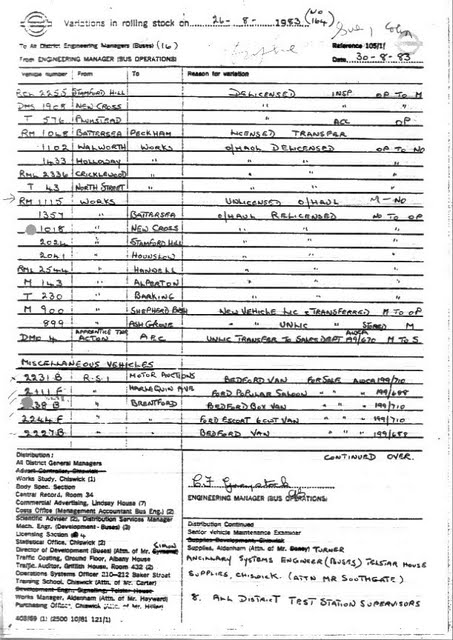 Variations in rolling stock on 26-8-1983 (NO 164)
To All District Engineering Managers (Buses) (16)
Reference 105/1/
From ENGINEERING MANAGER (BUS OPERATIONS)
Date 30-8-83
Vehicle number From To Reason for variation
2255 STAMFORD HILL DELICENSED INSP OP TO M
DMS 1908 NEW CROSS " " "
T 576 PLUMSTEAD " ACC OP
RM 1068 BATTERSEA PECKHAM LICENSED TRANSFER
1102 WALWORTH WORKS O/HAUL DELICENSED OP TO NO
1433 HOLLOWAY " " " "
RML 2336 CRICKLEWOOD " " " "
T 43 NORTH STREET " " " "
RM 1115 WORKS UNLICENSED O/HAUL M-NO
1357 " BATTERSEA O/HAUL RELICENSED NO TO OP
1018 " NEW CROSS " " "
2024 " STAMFORD HILL " " "
2041 " HOUNSLOW " " "
RML 2544 " HANWELL " " "
M 143 " ALPERTON " " "
T 230 " BARKING " " "
M 900 " SHEPHERDS BUSH NEW VEHICLE LIC & TRANSFERRED M TO OP
899 ASH GROVE " " UNLIC " STORED M
DMO 4 APPRENTICE TRG ACTON A.E.C. UNLIC TRANSFER TO SALES DEPT 199/670 M TO S
MISCELLANEOUS VEHICLES
2231 B R-S-1 MOTOR AUCTIONS BEDFORD VAN FOR SALE ALOCA 199/710
2111 F " HARLEQUIN AVE FORD POPULAR SALOON " " " 199/688
38 B " BRENTFORD BEDFORD BOX VAN " " " 199/710
2244 F " " FORD ESCORT 6CWT VAN " " " 199/710
2227 B " " BEDFORD VAN " " " 199/688
CONTINUED OVER.
Distribution:
All District General Managers
Advert Controller, Chiswick
Works Study, Chiswick (1)
Body Spec. Section
Central Record, Room 34
Commercial Advertising, Lindsey House (7)
Costs Office (Management Accountant Bus Eng.) (2)
Scientific Adviser (2), Distribution Services Manager
Mech. Engr. (Development - Buses) (3)
Licensing Section 4
Statistical Office, Chiswick (2)
Director of Development (Buses) (Attn. of Mr. SIMON
Traffic Costing, Ground Floor, Albany House
Traffic Auditor, Griffith House, Room 432 (2)
Operations Systems Officer 210-212 Baker Street
Training School, Chiswick (Attn. of Mr. Carter)
Development Engr. Signalling, Telstar House
Works Manager, Aldenham (Attn. of Mr. Hayward)
Purchasing Officer, Chiswick
408/69 (1) (2500 10/81 121/1)
ENGINEERING MANAGER (BUS OPERATIONS)
Distribution Continued
Senior Vehicle Maintenance Examiner
Supplies Development, Chiswick
Supplies, Aldenham (Attn. of Mr. TURNER
ANCILLARY SYSTEMS ENGINEER (BUSES) TELSTAR HOUSE
SUPPLIES, CHISWICK. (ATTN MR SOUTHGATE)
8. ALL DISTRICT TEST STATION SUPERVISORS